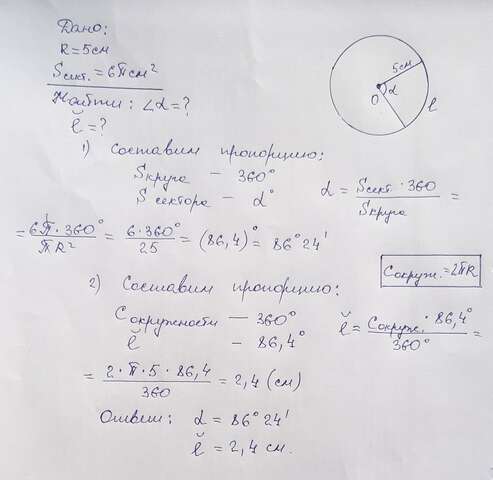 Дано:
R = 5 см
Sсект. = 6π см²
Найти: ∠α = ?
l̆ = ?
5 см
O
α
l
1) Составим пропорцию:
Sкруга — 360°
Sсектора — α°
α = Sсект · 360 / Sкруга =
= 6π · 360° / πR² = 6·360° / 25 = (86,4)° = 86° 24'
Cокруж. = 2πR
2) Составим пропорцию:
Cокружности — 360°
l̆ — 86,4°
l̆ = Cокруж. · 86,4° / 360° =
= 2·π·5·86,4 / 360 = 2,4 (см)
Ответ: α = 86° 24'
l̆ = 2,4 см.